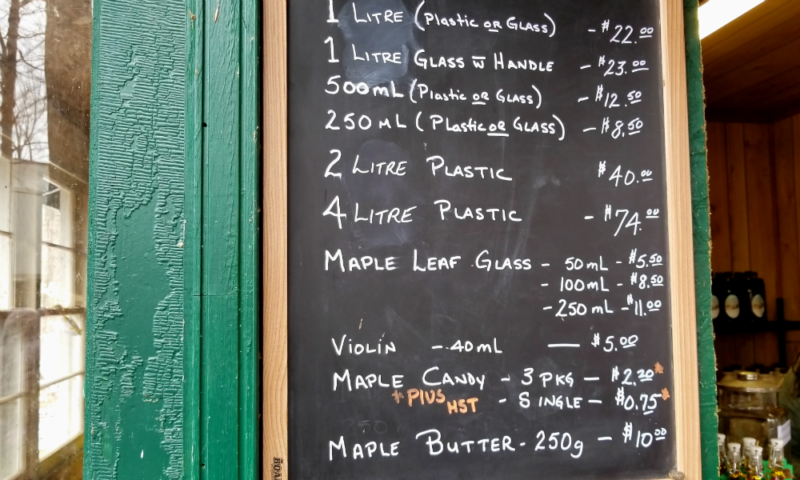 1 LITRE (PLASTIC OR GLASS) - $22.00
1 LITRE GLASS W̅ HANDLE - $23.00
500mL (PLASTIC OR GLASS) - $12.50
250 mL (PLASTIC OR GLASS) - $8.50
2 LITRE PLASTIC $40.00
4 LITRE PLASTIC - $74.00
MAPLE LEAF GLASS - 50mL - $5.50
- 100mL - $8.50
- 250mL - $11.00
VIOLIN - 40mL — $5.00
MAPLE CANDY - 3 PKG - $2.20*
*PLUS HST - SINGLE - $0.75*
MAPLE BUTTER - 250g - $10.00